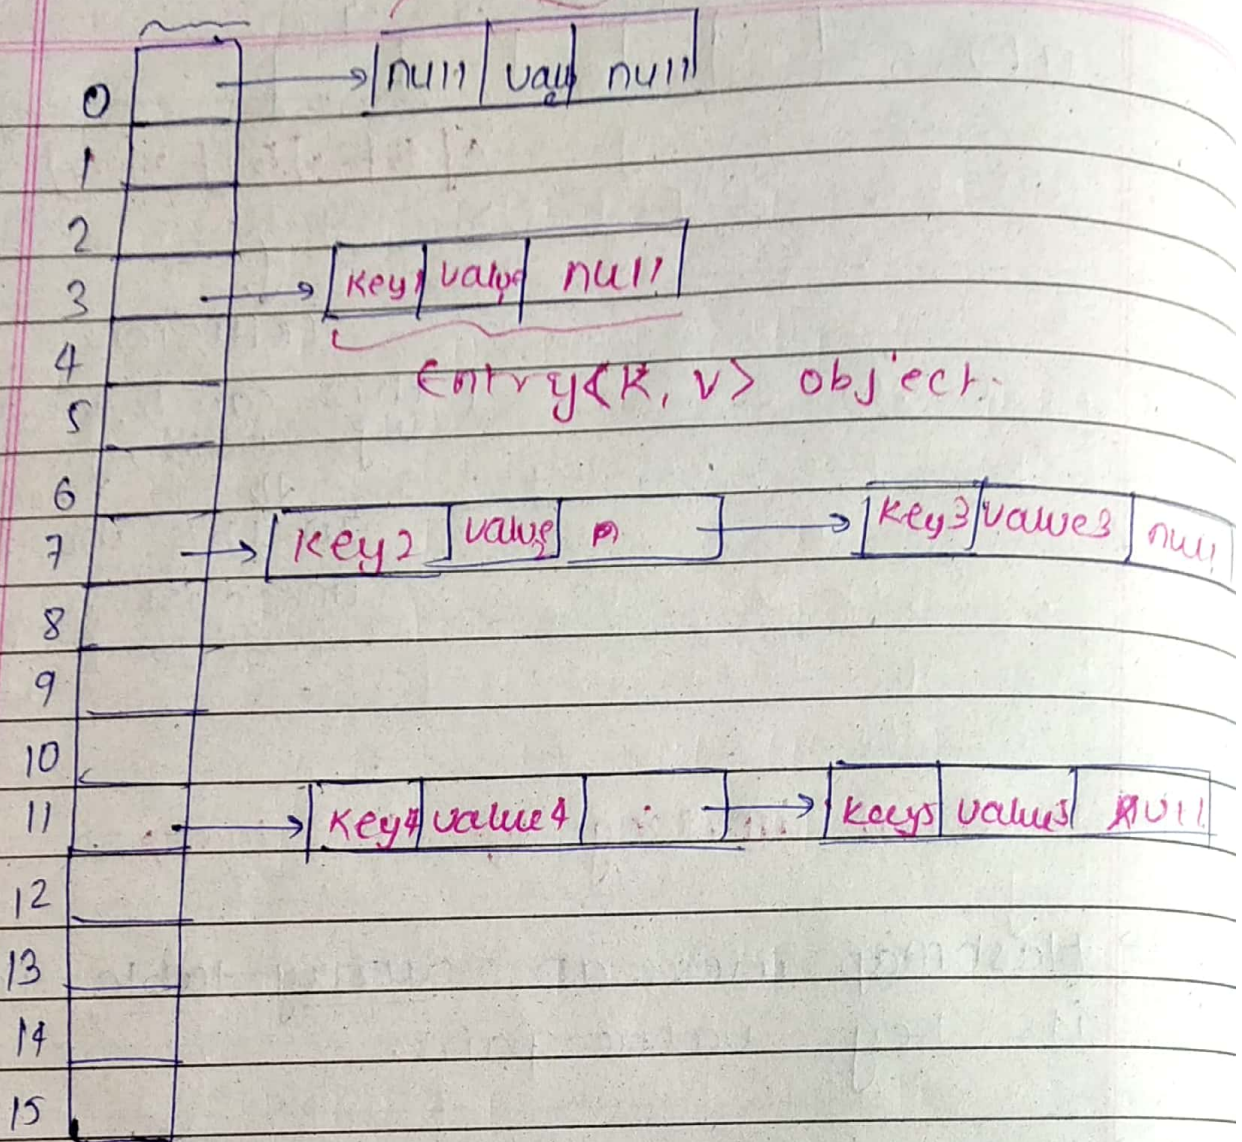 0 null value null
1
2
3 key1 value null
4
Entry<K, V> object.
5
6
7 key2 value key3 value3 null
8
9
10
11 key4 value4 key5 value5 null
12
13
14
15